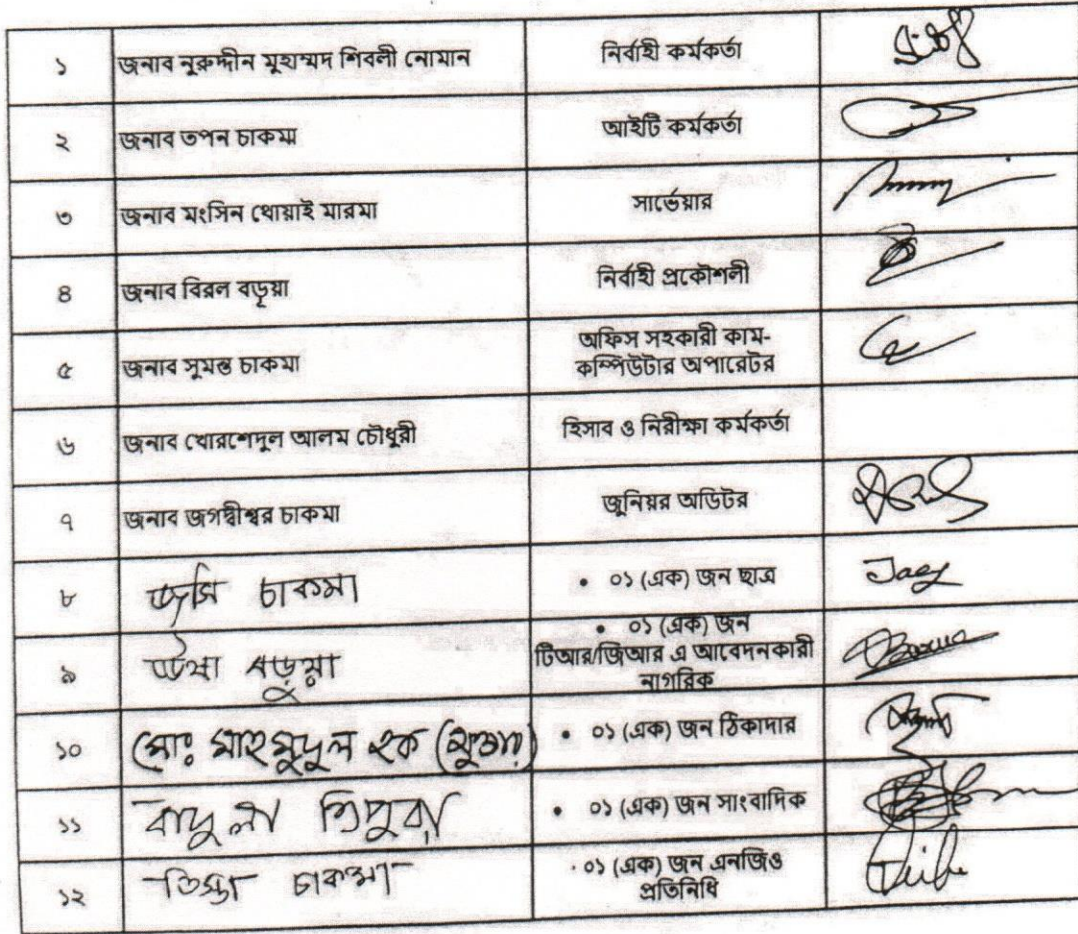 ১ জনাব নুরুদ্দীন মুহাম্মদ শিবলী নোমান নির্বাহী কর্মকর্তা
২ জনাব তপন চাকমা আইটি কর্মকর্তা
৩ জনাব মংসিন থোয়াই মারমা সার্ভেয়ার
৪ জনাব বিরল বড়ূয়া নির্বাহী প্রকৌশলী
৫ জনাব সুমন্ত চাকমা অফিস সহকারী কাম-
কম্পিউটার অপারেটর
৬ জনাব খোরশেদুল আলম চৌধুরী হিসাব ও নিরীক্ষা কর্মকর্তা
৭ জনাব জগদ্বীশ্বর চাকমা জুনিয়র অডিটর
৮ চাকমা • ০১ (এক) জন ছাত্র
৯ বড়ুয়া • ০১ (এক) জন
টিআর/জিআর এ আবেদনকারী
নাগরিক
১০ মোঃ মাহমুদুল হক • ০১ (এক) জন ঠিকাদার
১১ ত্রিপুরা • ০১ (এক) জন সাংবাদিক
১২ চাকমা • ০১ (এক) জন এনজিও
প্রতিনিধি